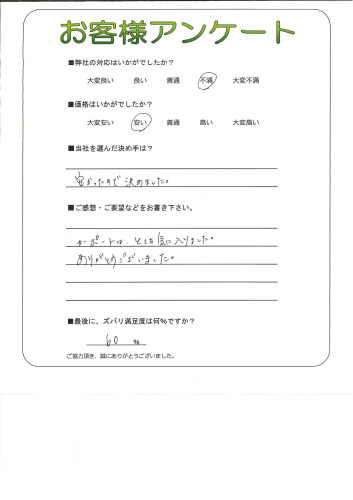 お客様アンケート
■弊社の対応はいかがでしたか?
大変良い 良い 普通 不満 大変不満
■価格はいかがでしたか?
大変安い 安い 普通 高い 大変高い
■当社を選んだ決め手は?
安かったので決めました。
■ご感想・ご要望などをお書き下さい。
カーポートは、とても気に入りました。
ありがとうございました。
■最後に、ズバリ満足度は何%ですか?
60 %
ご協力頂き、誠にありがとうございました。